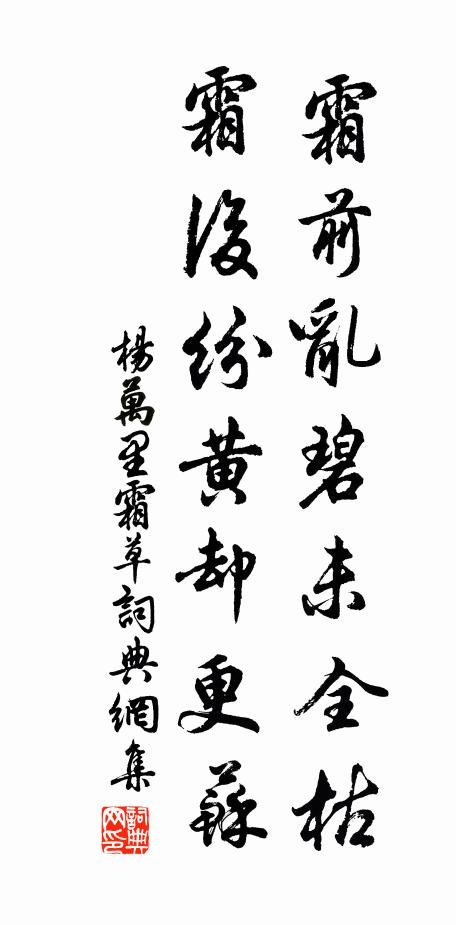 霜前亂碧未全枯
霜後紛黃却更蘇
楊萬里霜草詞典網集
詞典网印